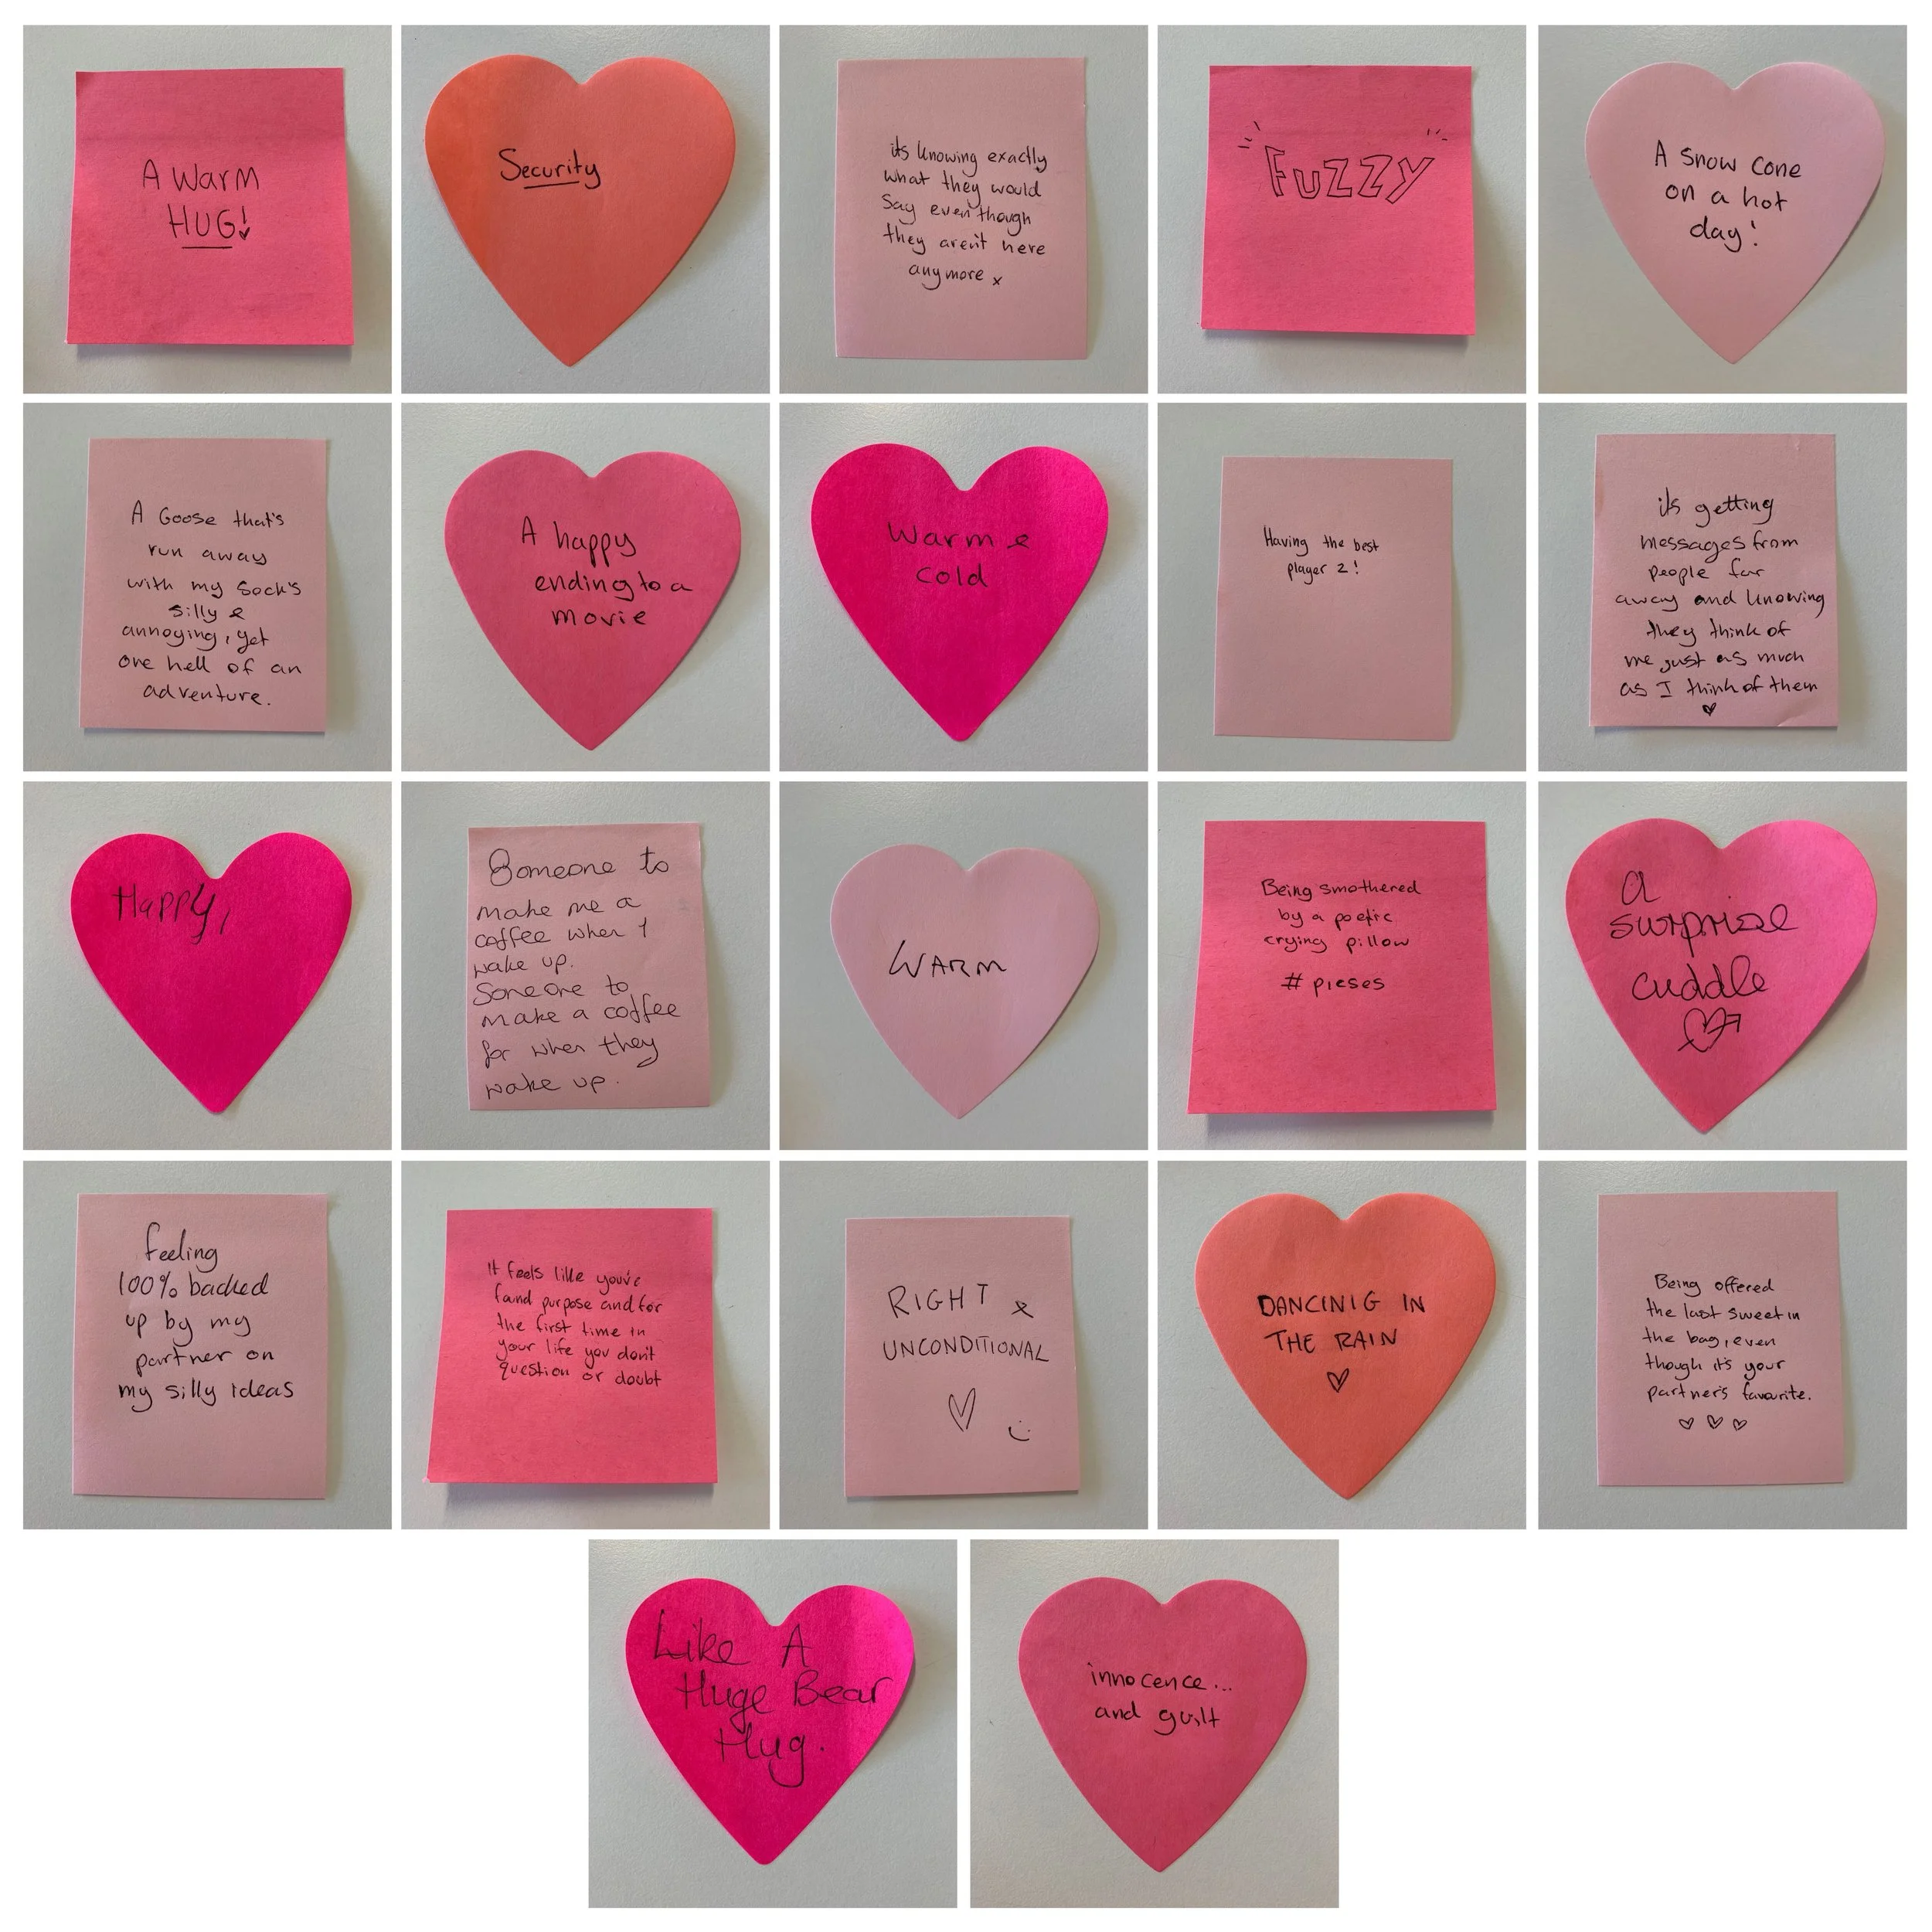 A WARM
HUG!
Security
its knowing exactly
what they would
say even though
they aren't here
anymore x
FUZZY
A snow cone
on a hot
day!
A Goose that's
run away
with my sock's
silly &
annoying, yet
one hell of an
adventure.
A happy
ending to a
movie
Warm &
cold
Having the best
player 2!
its getting
messages from
people far
away and knowing
they think of
me just as much
as I think of them
Happy,
Someone to
make me a
coffee when I
wake up.
Someone to
make a coffee
for when they
wake up.
WARM
Being smothered
by a poetic
crying pillow
# pieses
a
surprise
cuddle
feeling
100% backed
up by my
partner on
my silly ideas
It feels like you've
found purpose and for
the first time in
your life you don't
question or doubt
RIGHT &
UNCONDITIONAL
DANCINIG IN
THE RAIN
Being offered
the last sweet in
the bag, even
though it's your
partner's favourite.
Like A
Huge Bear
Hug.
innocence...
and guilt